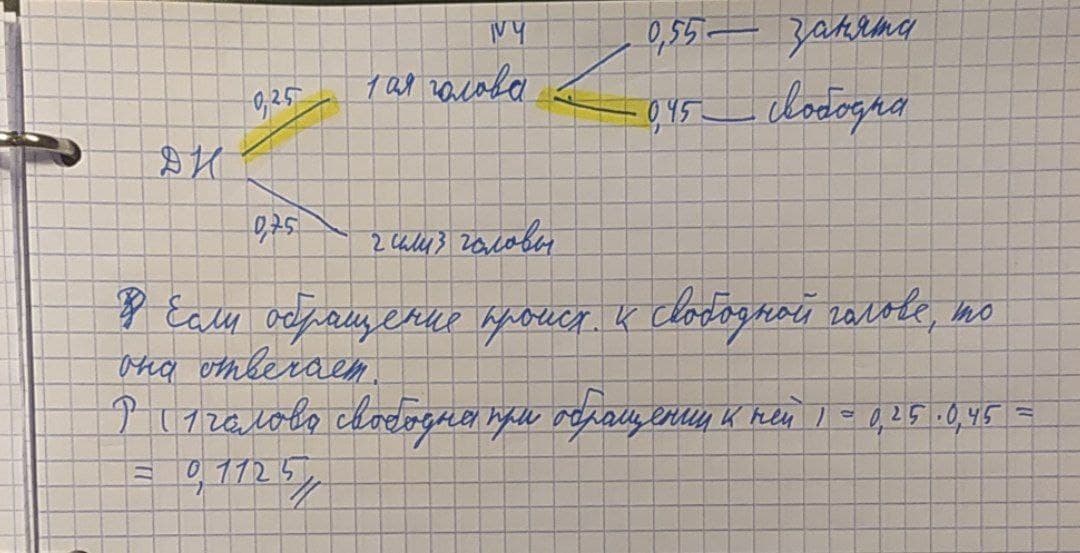 №4
0,55 — занята
0,25 1ая голова
0,45 — свободна
ДН
0,75
2 или 3 головы
Если обращение происх. к свободной голове, то
она отвечает.
P (1 голова свободна при обращении к ней) = 0,25 · 0,45 =
= 0,1125